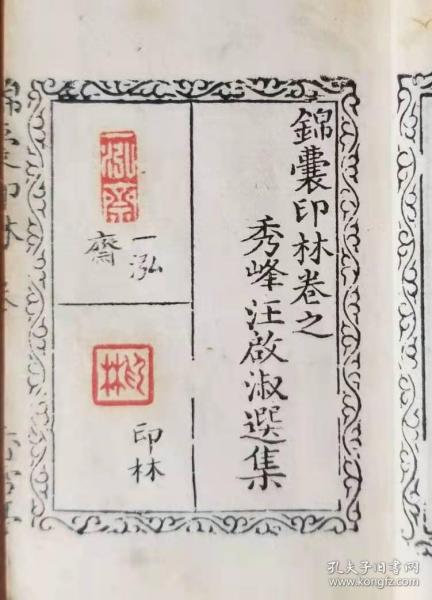 錦囊印林卷之
秀峰汪啟淑選集
一泓齋
一泓
齋
印林
印林
孔夫子旧书网
www.kongfz.com